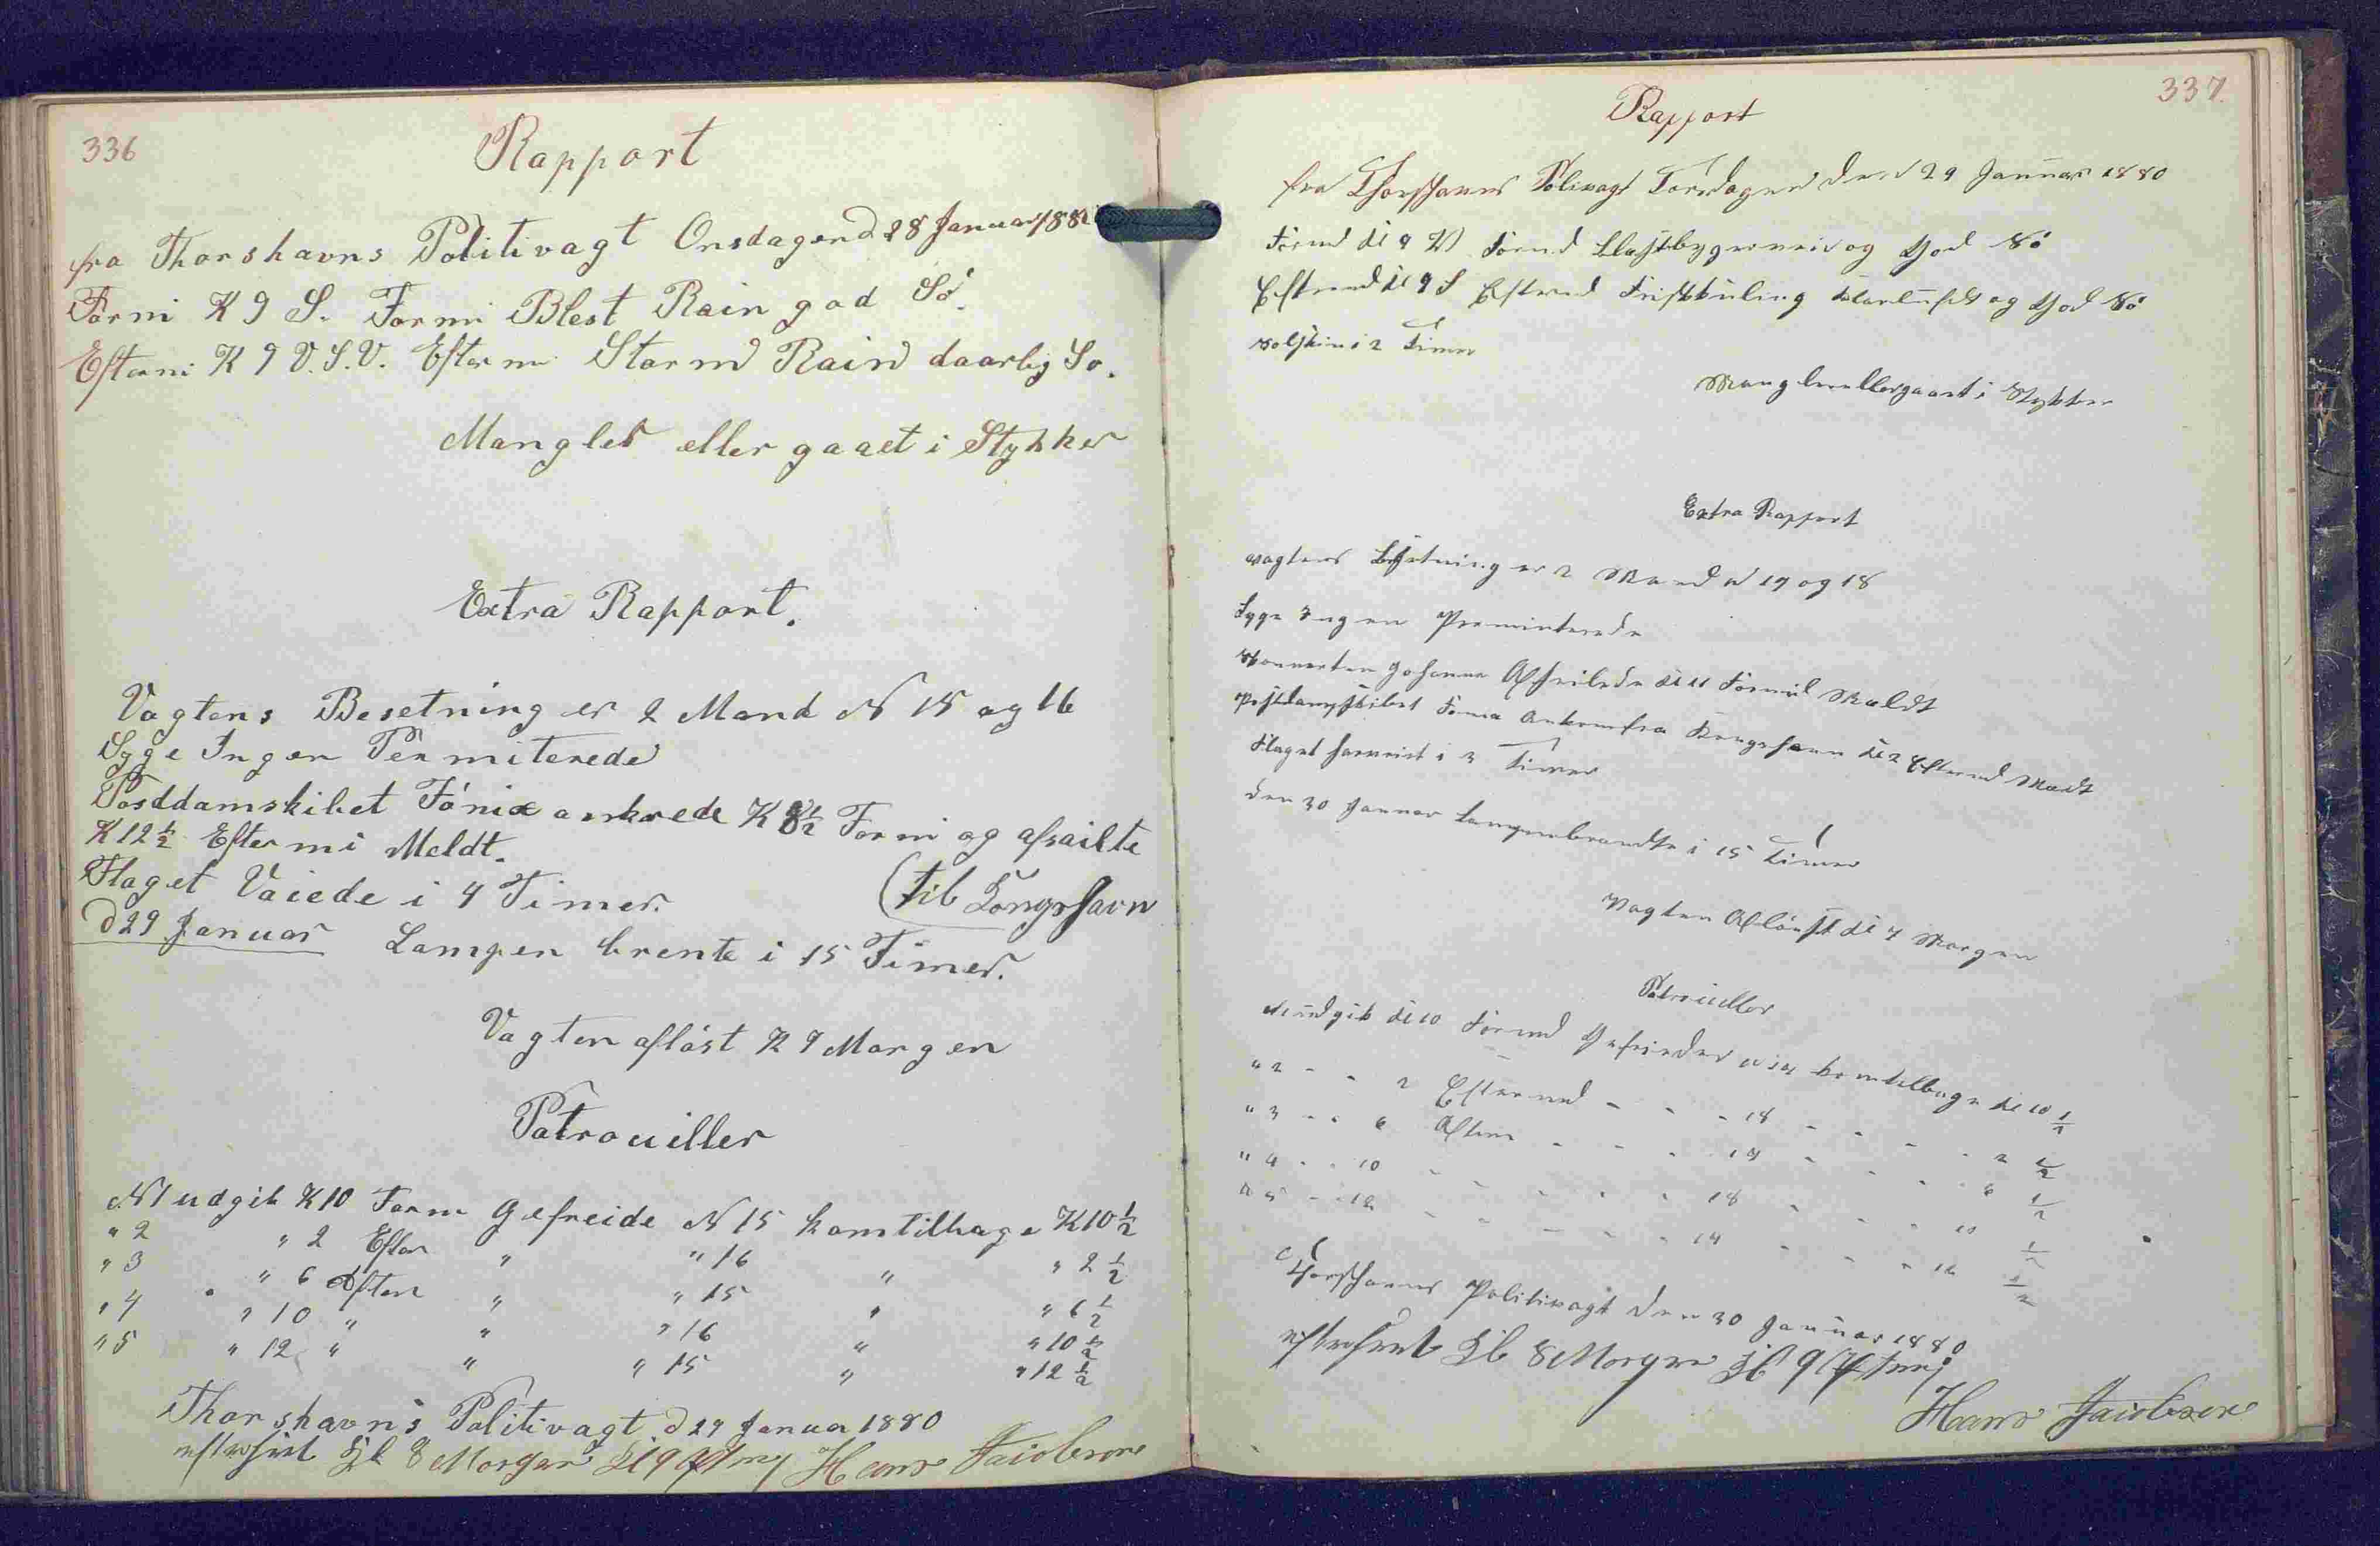 336
Rapport
fra Thorshavns Politivagt Onsdagen d 28 Januar 1880
Formi K 9 S. Formi Blest Rain god Sö.
Eftermi K 9 V.S.V. Efter mi Storm Rain daarlig So.
Mangler eller gaaet i Stykker
Extra Rapport.
Vagtens Besetning er 2 Mand N 15 og 16
Syge Ingen Permiterede
Posddamskibet Fönix ankrede K 8 1/2 Formi og afsailte
K 12 1/2 Eftermi Meldt.
(til Kongshavn
Flaget Vaiede i 4 Timer.
d 29 Januar Lampen brente i 15 Timer.
Vagten aflöst K 9 Morgen
Patrouiller
N 1 udgik K 10 Form Gefreide N 15 kom tilbage K 10 1/2
" 2 " 2 Efter " " 16 " " 2 1/2
" 3 " 6 Aften " " 15 " " 6 1/2
" 4 " 10 " " " 16 " " 10 1/2
" 5 " 12 " " " 15 " " 12 1/2
Thorshavns Politivagt d 29 Januar 1880
efterseet Kl 8 Morgen Kl 9 Hans Jacobsen
337
Rapport
fra Thorshavns Polivagt Torsdagen den 29 Januar 1880
Formd Kl 9 V Formd og God Sö
Eftermd Kl 9 S Eftermd Friskkuling og God Sö
Solskin i 2 Timer
Mangler eller gaaet i Stykker
Extra Rapport
Vagtens Besetning er 2 Mand N 17 og 18
Syge Ingen Permiterede
Skonnerten Johanne Afseilede Kl 11 Formid Meldt
Postdampskibet Fönix Ankom fra Kongshavn Kl 2 Eftermd Meldt
Flaget har veiet i 3 Timer
den 30 Januar Lampen brendte i 15 Timer
Vagten Aflöst Kl 9 Morgen
Patrouiller
N 1 udgik Kl 10 Formd Gefreider N 17 kom tilbage Kl 10 1/2
" 2 - - 2 Eftermd - - - 18 - - - - 2 1/2
" 3 - - 6 Aften - - - 17 - - - - 6 1/2
" 4 - - 10 - - - - 18 - - - 10 1/2
" 5 - - 12 - - - - 17 - - - 12 1/2
Thorshavns Politivagt den 30 Januar 1880
efterseet Kl 8 Morgen Kl 9
Hans Jacobsen